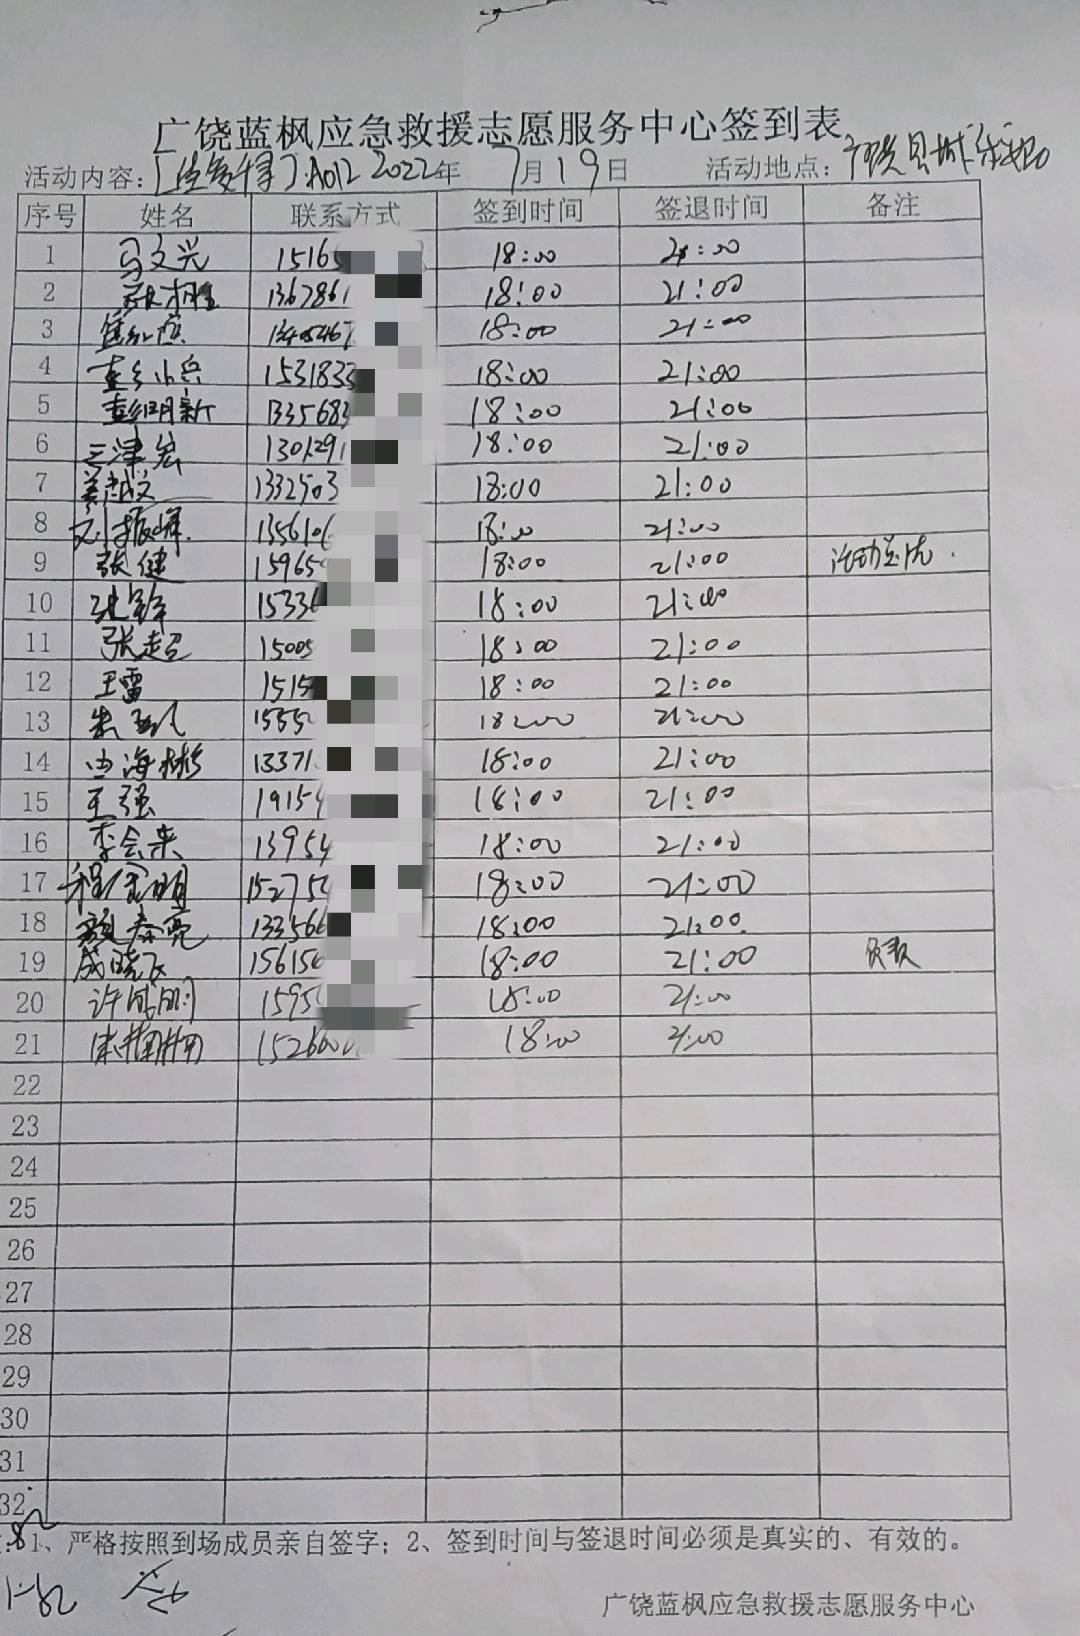 广饶蓝枫应急救援志愿服务中心签到表
活动内容: A012 2022年 7月19日 活动地点: 广饶县城
序号 姓名 联系方式 签到时间 签退时间 备注
1 马文兴 15165 18:00 21:00
2 1367861 18:00 21:00
3 18:00 21:00
4 1531833 18:00 21:00
5 1335683 18:00 21:00
6 1301291 18:00 21:00
7 1332503 18:00 21:00
8 刘振峰 1356106 18:00 21:00
9 张健 15965 18:00 21:00
10 15336 18:00 21:00
11 张超 15005 18:00 21:00
12 王雷 1515 18:00 21:00
13 18:00 21:00
14 由海彬 13371 18:00 21:00
15 王强 19154 18:00 21:00
16 李会来 13954 18:00 21:00
17 程金明 152754 18:00 21:00
18 颜春亮 133566 18:00 21:00
19 成晓飞 156150 18:00 21:00 负责
20 1595 18:00 21:00
21 1526600 18:00 21:00
22
23
24
25
26
27
28
29
30
31
32
1、严格按照到场成员亲自签字；2、签到时间与签退时间必须是真实的、有效的。
广饶蓝枫应急救援志愿服务中心